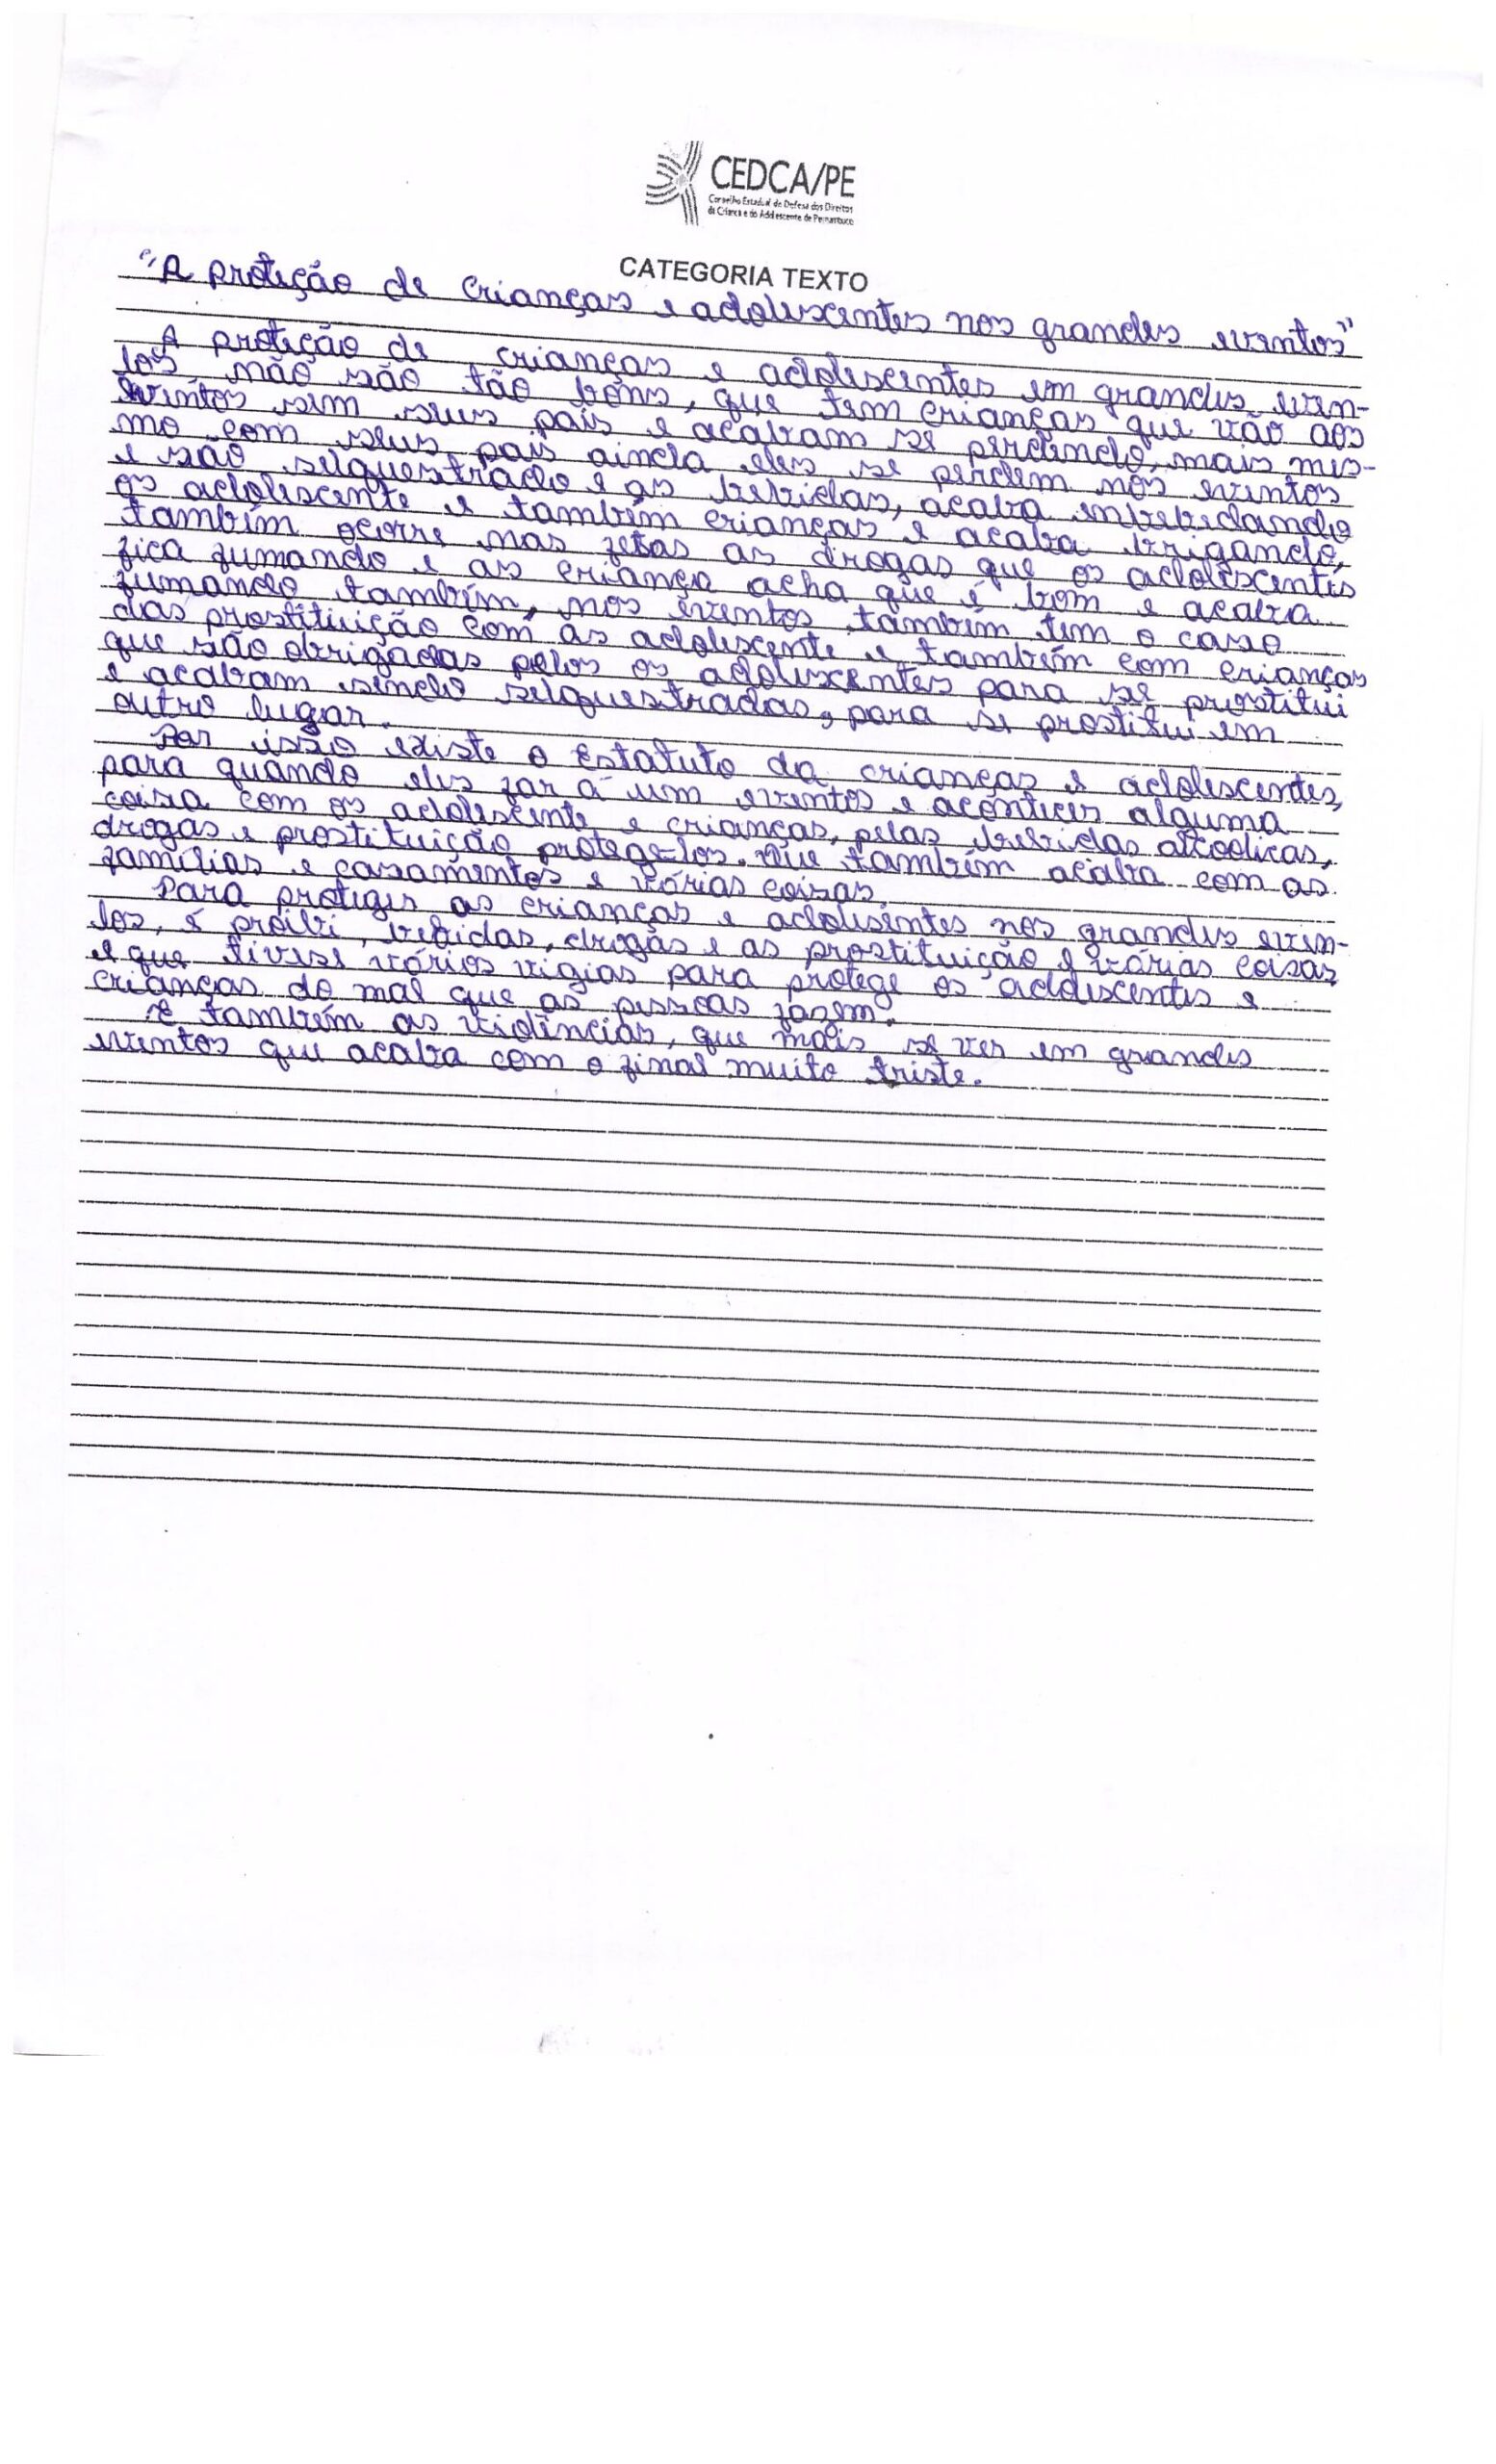 CEDCA/PE
Conselho Estadual de Defesa dos Direitos
da Criança e do Adolescente de Pernambuco
CATEGORIA TEXTO
"A proteção de crianças e adolescentes nos grandes eventos"
A proteção de crianças e adolescentes em grandes even-
tos, não são tão bons, que tem crianças que vão aos
eventos sem seus pais e acabam se perdendo, mais mes-
mo com seus pais ainda eles se perdem nos eventos
e são selquestrado e as bebidas, acaba embebedando
os adolescente e também crianças e acaba brigando,
também ocorre nas festas as drogas que os adolescentes
fica fumando e as criança acha que é bom e acaba
fumando também, nos eventos também tem o caso
das prostituição com as adolescente e também com crianças
que são obrigadas pelos os adolescentes para se prostitui
e acabam sendo selquestradas, para se prostitui em
outro lugar.
Por issão existe o Estatuto da crianças e adolescentes,
para quando eles far a um eventos e acontecer alguma
coisa com os adolescente e crianças, pelas bebidas alcoolicas,
drogas e prostituição protege-los. Que também acaba com as
famílias e casamentos e várias coisas.
Para proteger as crianças e adolesentes nos grandes even-
tos, é proibi, bebidas, drogas e as prostituição e várias coisas,
e que tivese vários vigias para protege os adolescentes e
crianças do mal que as pessoas fazem.
E também as violências, que mais se ver em grandes
eventos que acaba com o final muito triste.